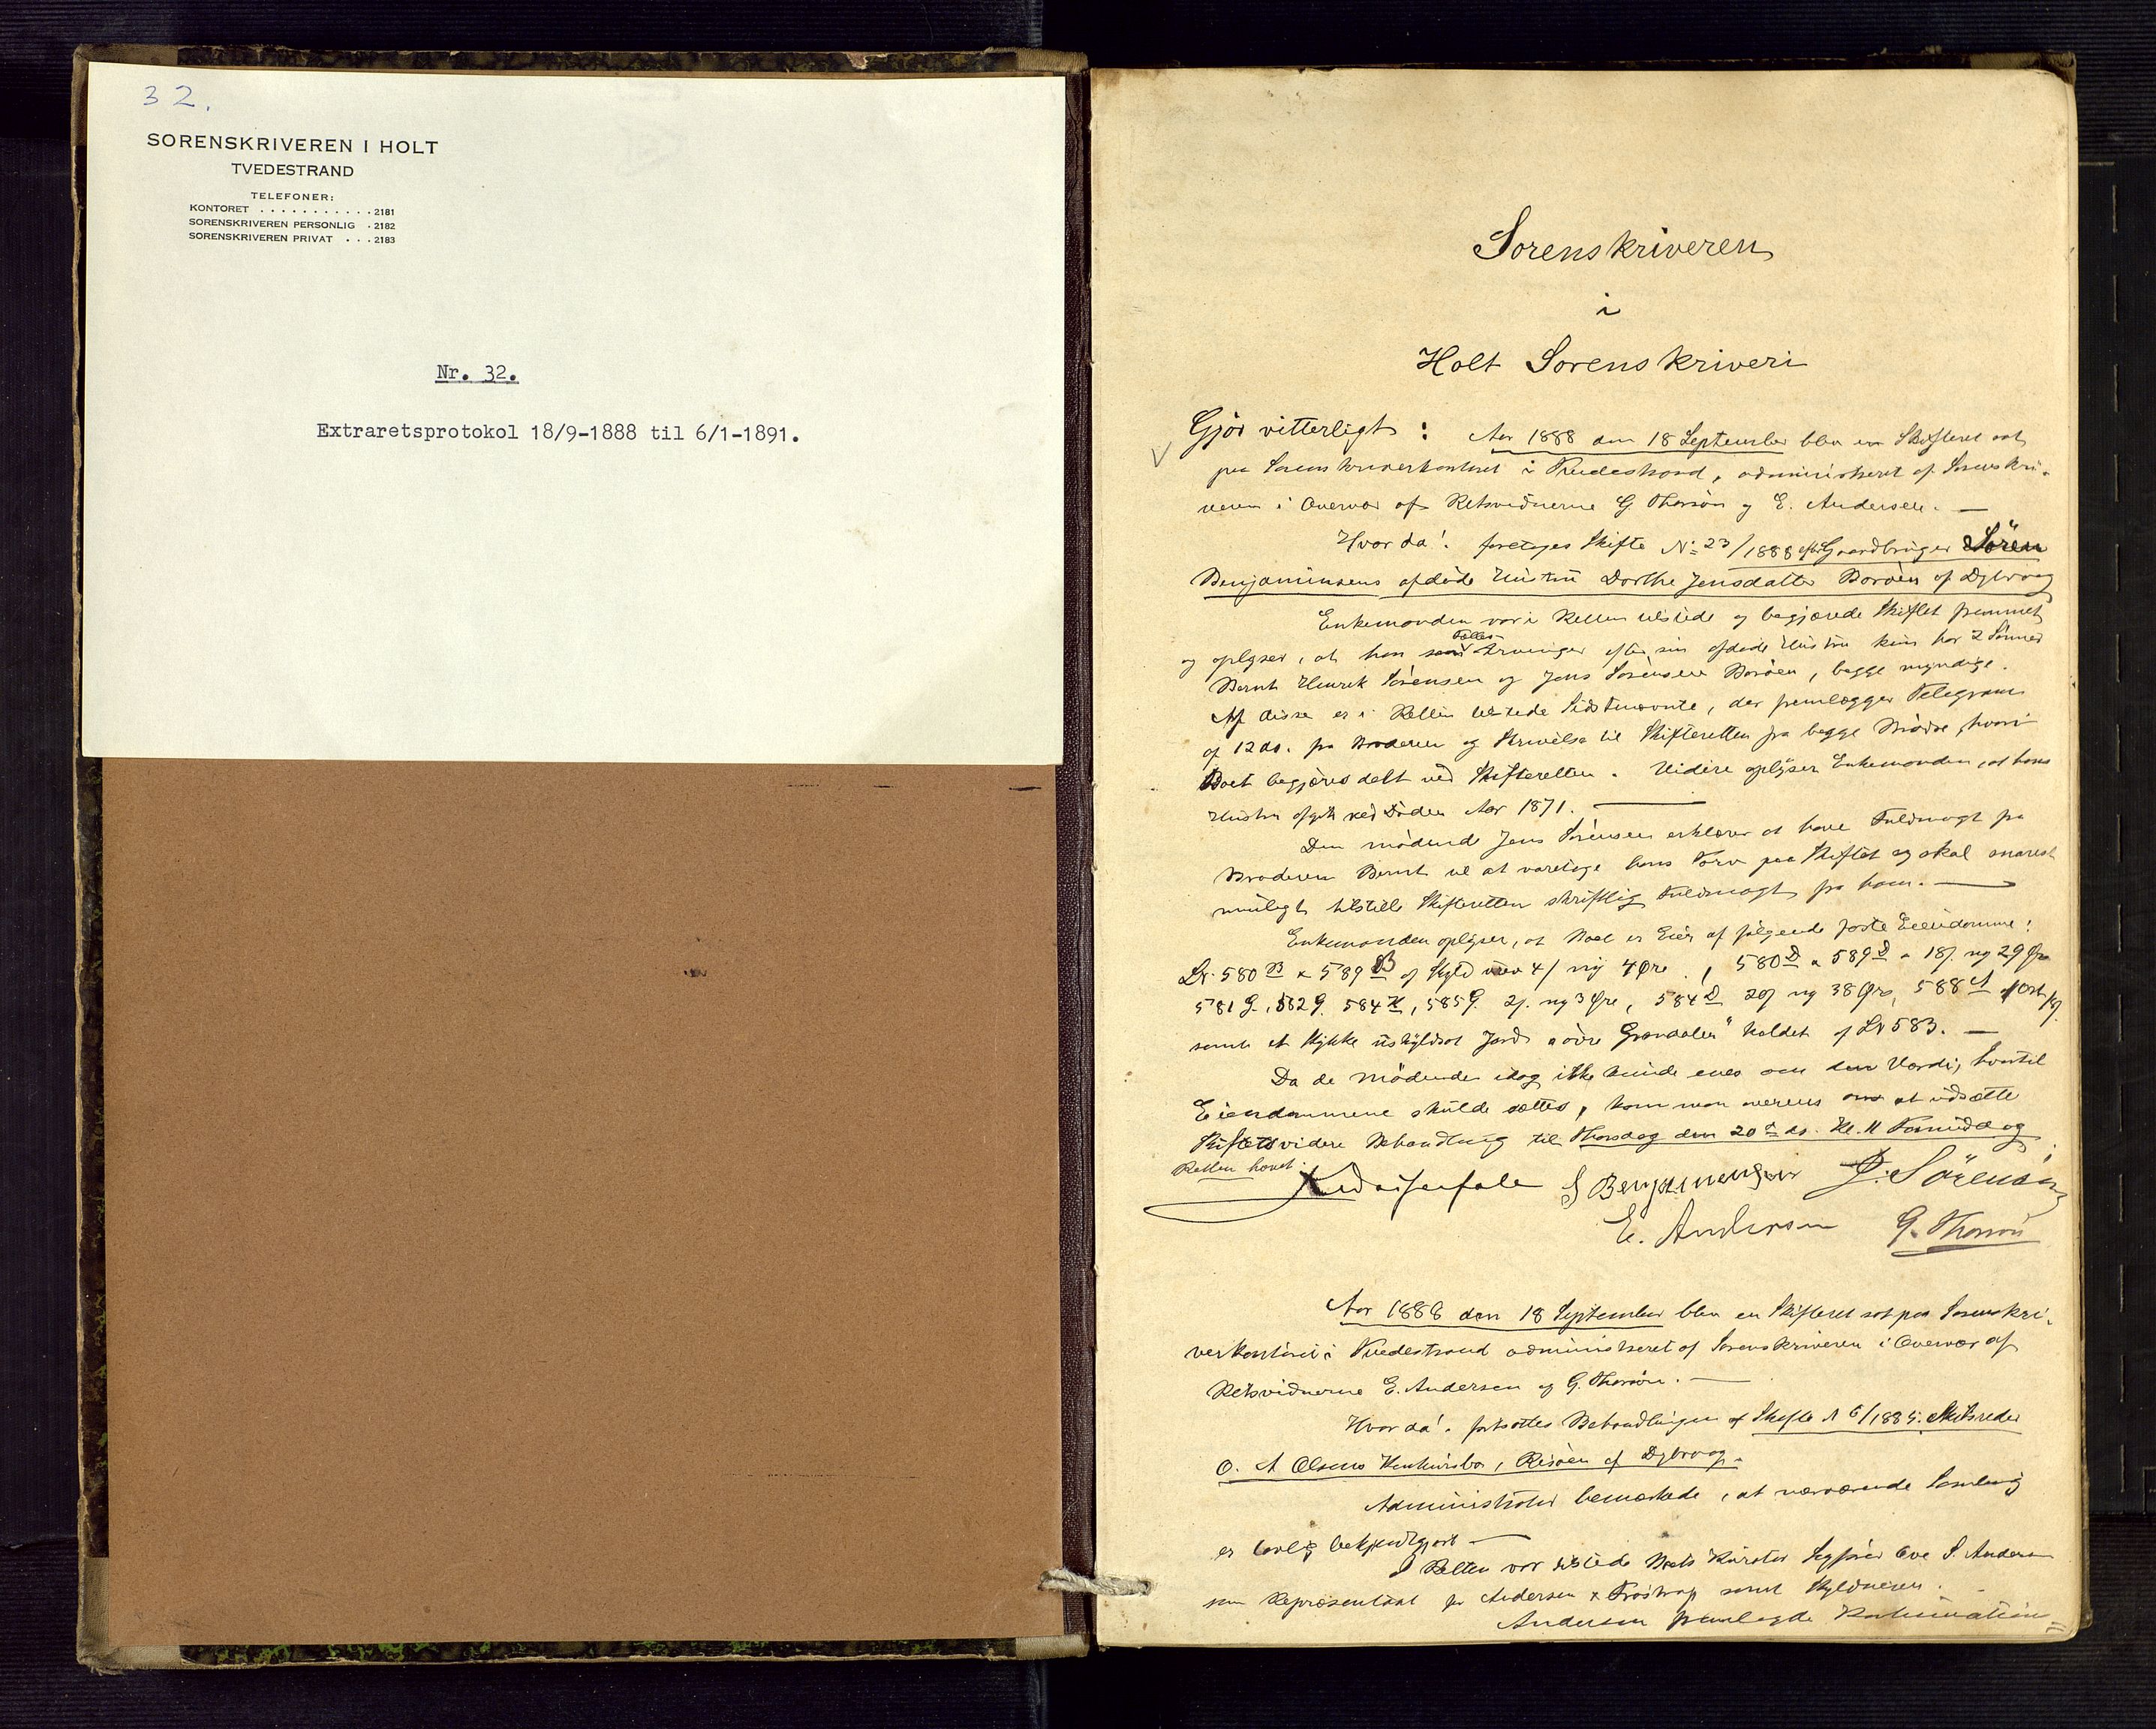 32.
SORENSKRIVEREN I HOLT
TVEDESTRAND
TELEFONER:
KONTORET . . . . . . . . . . . 2181
SORENSKRIVEREN PERSONLIG . 2182
SORENSKRIVEREN PRIVAT . . . 2183
Nr. 32.
Extraretsprotokol 18/9-1888 til 6/1-1891.
Sorenskriveren
i
Holt Sorenskriveri
Gjør vitterligt: Aar 1888 den 18 September blev en Skifteret sat
paa Sorenskriverkontoret i Tvedestrand, administreret af Sorenskri-
veren i Overvær af Retsvidnerne G Thorsön og E. Andersen. —
Hvorda! foretoges Skifte No 23/1888 efter Gaardbruger Sören
Benjaminsens afdøde Hustru Dorthe Jensdatter Borøen af Dybvaag
Enkemanden var i Retten tilstede og begjærede Skiftet fremmet
og oplyser, at han som Fælles Arvinger efter sin afdøde Hustru kun har 2 Sønner
Bernt Henrik Sörensen og Jens Sörensen Borøen, begge myndige.
Af disse er i Retten tilstede Sidstnævnte, der fremlægger Telegram
af 12 ds. fra Broderen og Skrivelse til Skifteretten fra begge Brødre, hvori
Boet begjæres delt ved Skifteretten. Videre oplyser Enkemanden, at hans
Hustru afgik ved Døden Aar 1871. —
Den mødende Jens Sörensen erklærer at have Fuldmagt fra
Broderen Bernt til at varetage hans Tarv paa Skiftet og skal snarest
muligt tilstille Skifteretten skriftlig Fuldmagt fra ham. —
Enkemanden oplyser, at Boet er Eier af følgende faste Eiendomme:
Lr. 580 B & 589 B af Skyld 4/ ny 4 Øre, 580 D & 589 D 18/. ny 29 Øre
581 G., 582 G. 584 K, 585 G. 2/. ny 3 Øre, 584 D 20/ ny 38 Øre, 588 A
samt et Stykke uskyldsat Jord "øvre Grøndalen" kaldet af Lr 583. —
Da de mødende idag ikke kunde enes om den Værdi, hvortil
Eiendommene skulde sættes, kom man overens om at udsætte
Skiftets videre Behandling til Thorsdag den 20de ds. Kl. 11 Formiddag
Retten hævet.
S Benjamensen J. Sörensen
E. Andersen G. Thorsön
Aar 1888 den 18 September blev en Skifteret sat paa Sorenskri-
verkontoret i Tvedestrand administreret af Sorenskriveren i Overvær af
Retsvidnerne E. Andersen og G. Thorsön. —
Hvorda! fortsattes Behandlingen af Skifte N 6/1885. Skibsreder
O. A Olsens Konkursbo, Risøen af Dybvaag.
Administrator bemærkede, at nærværende Samling
er lovlig bekjendtgjort —
I Retten var tilstede Boets Kurator Sagfører Ove S. Andersen
som Repræsentant for Andersen & Trostrup samt Skyldneren.
Andersen fremlagde